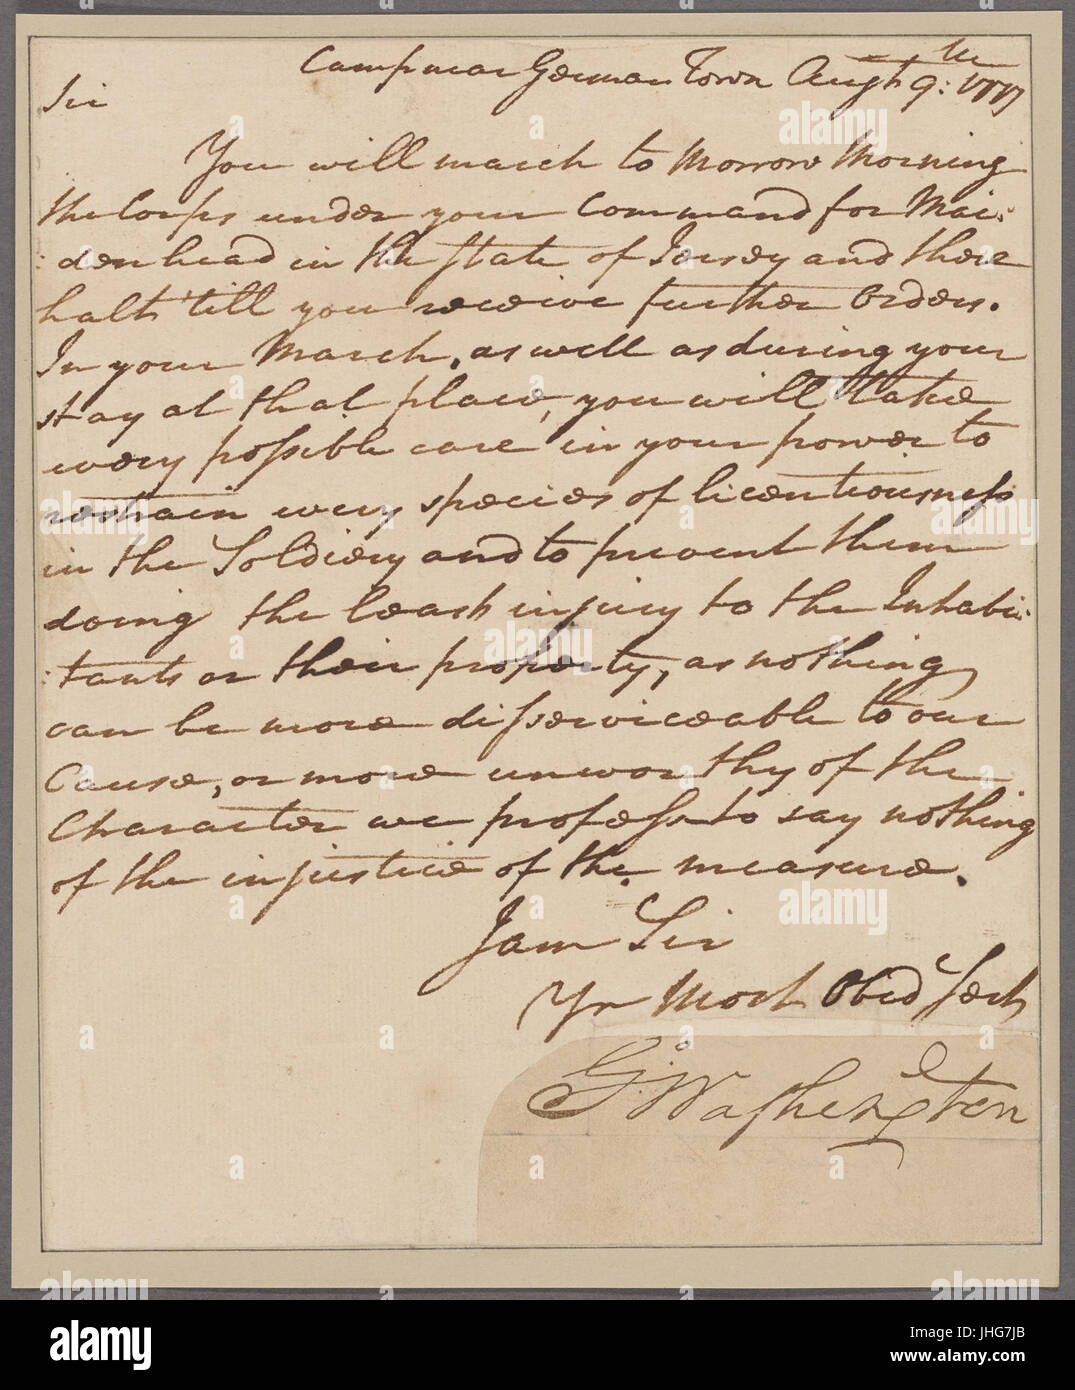 Camp near German Town Augt. 9th: 1777
Sir
You will march to Morrow Morning
the Corps under your Command for Mai:
:denhead in the State of Jersey and there
halt 'till you receive further Orders.
In your March, as well as during your
stay at that place, you will take
every possible care in your power to
restrain every species of licentiousness
in the Soldiery and to prevent them
doing the least injury to the Inhabi:
:tants or their property, as nothing
can be more disserviceable to our
Cause, or more unworthy of the
Character we profess to say nothing
of the injustice of the measure.
I am Sir
Yr Most Obed Sert
G:Washington
alamy stock photo
alamy
a
alamy
Image ID: JHG7JB
www.alamy.com